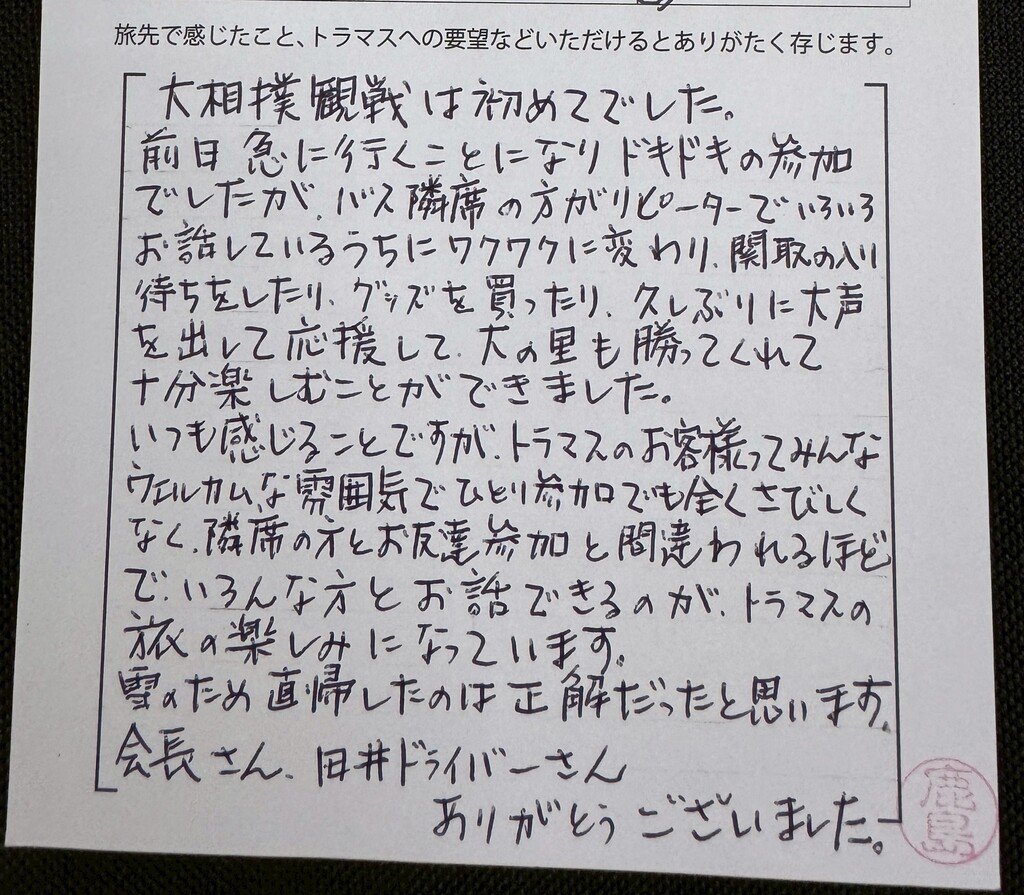 旅先で感じたこと、トラマスへの要望などいただけるとありがたく存じます。
大相撲観戦は初めてでした。
前日 急に行くことになり ドキドキの参加
でしたが、バス隣席の方がリピーターでいろいろ
お話しているうちにワクワクに変わり、関取の入り
待ちをしたり、グッズを買ったり、久しぶりに大声
を出して応援して、大の里も勝ってくれて
十分楽しむことができました。
いつも感じることですが、トラマスのお客様ってみんな
ウェルカムな雰囲気でひとり参加でも全くさびしく
なく、隣席の方とお友達参加と間違われるほど
で、いろんな方とお話できるのが、トラマスの
旅の楽しみになっています。
雪のため直帰したのは正解だったと思います。
会長さん、臼井ドライバーさん
ありがとうございました。
鹿島